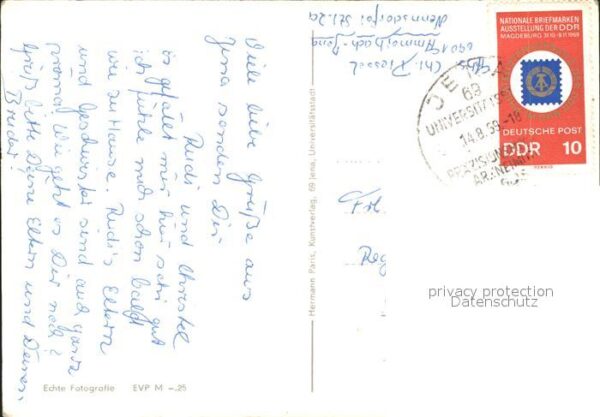 Viele liebe Grüße aus
Jena senden Dir
Rudi und Christel
Es gefällt mir hier sehr gut
ich fühle mich schon bald
wie zu Hause. Rudi's Eltern
und Geschwister sind auch ganz
prima. Wie geht es Dir noch?
Grüß bitte Deine Eltern und Deinen
Bruder!
Echte Fotografie EVP M -.25
Hermann Paris, Kunstverlag, 69 Jena, Universitätsstadt
Abs. Chr.
6901
Str. 2a
NATIONALE BRIEFMARKEN
AUSSTELLUNG DER DDR
MAGDEBURG 31·10-9·11·1969
DEUTSCHE POST
DDR 10
PFENNIG
JENA
69
14.8.69-18
Reg
privacy protection
Datenschutz